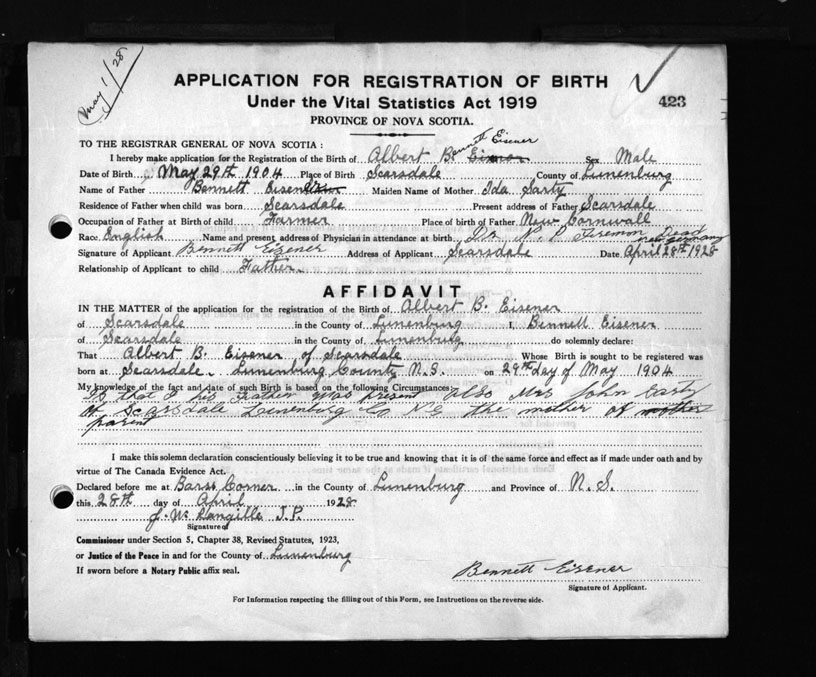 May 1/28
APPLICATION FOR REGISTRATION OF BIRTH
Under the Vital Statistics Act 1919
423
PROVINCE OF NOVA SCOTIA.
TO THE REGISTRAR GENERAL OF NOVA SCOTIA :
I hereby make application for the Registration of the Birth of Albert B. Eisener Sex Male
Date of Birth May 29th 1904 Place of Birth Scarsdale County of Lunenburg
Name of Father Bennett Maiden Name of Mother Ida Sarty
Residence of Father when child was born Scarsdale Present address of Father Scarsdale
Occupation of Father at Birth of child Farmer Place of birth of Father New Cornwall
Race English Name and present address of Physician in attendance at birth Dr N. P. Dead
Signature of Applicant Bennett Eisener Address of Applicant Scarsdale Date April 28th 1928
Relationship of Applicant to child Father
AFFIDAVIT
IN THE MATTER of the application for the registration of the Birth of Albert B. Eisener
of Scarsdale in the County of Lunenburg I, Bennett Eisener
of Scarsdale in the County of Lunenburg do solemnly declare:
That Albert B. Eisener of Scarsdale Whose Birth is sought to be registered was
born at Scarsdale. Lunenburg County N.S. on 29th day of May 1904
My knowledge of the fact and date of such Birth is based on the following Circumstances:
Is that I his Father was present also Mrs John Sarty
of Scarsdale Lunenburg Co NS the mother of mother
parent
I make this solemn declaration conscientiously believing it to be true and knowing that it is of the same force and effect as if made under oath and by
virtue of The Canada Evidence Act.
Declared before me at Barss Corner in the County of Lunenburg and Province of N. S.
this 28th day of April 1928
J. W. Langille J.P.
Signature of
Commissioner under Section 5, Chapter 38, Revised Statutes, 1923,
or Justice of the Peace in and for the County of Lunenburg
If sworn before a Notary Public affix seal.
Bennett Eisener
Signature of Applicant.
For Information respecting the filling out of this Form, see Instructions on the reverse side.